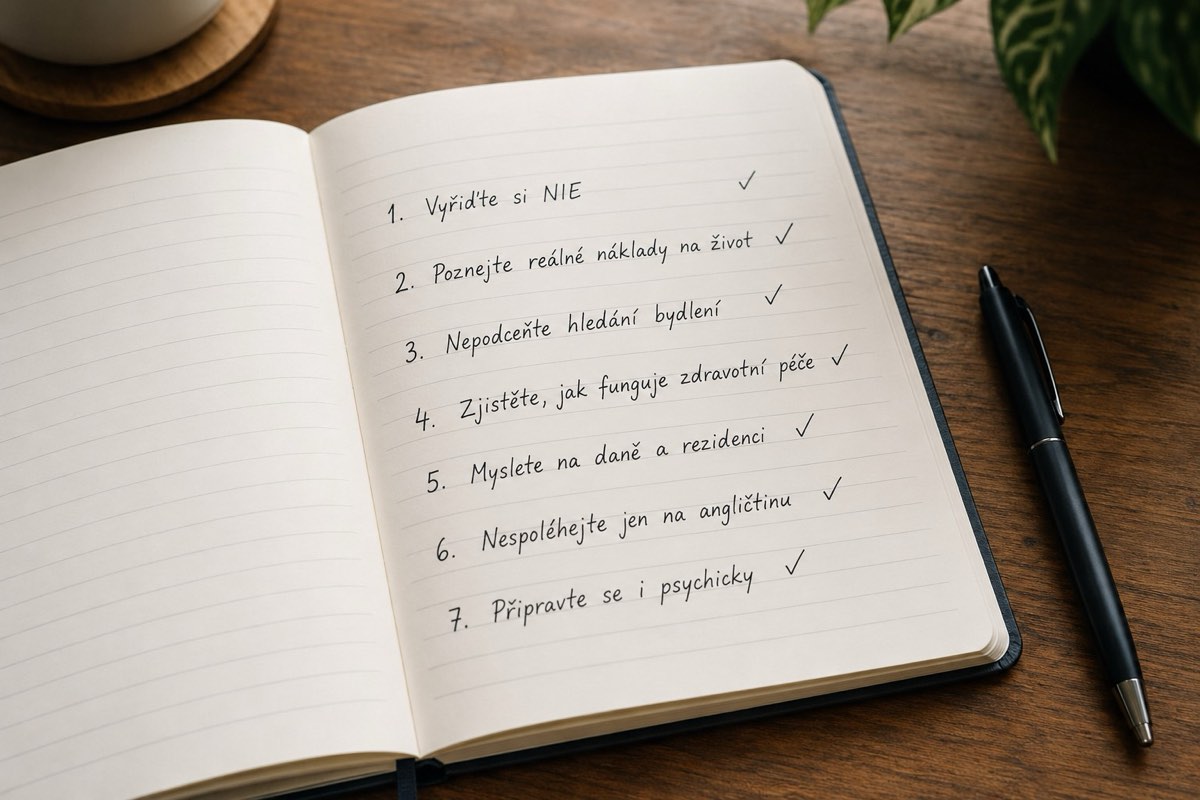 1. Vyřiďte si NIE ✓
2. Poznejte reálné náklady na život ✓
3. Nepodceňte hledání bydlení ✓
4. Zjistěte, jak funguje zdravotní péče ✓
5. Myslete na daně a rezidenci ✓
6. Nespoléhejte jen na angličtinu ✓
7. Připravte se i psychicky ✓